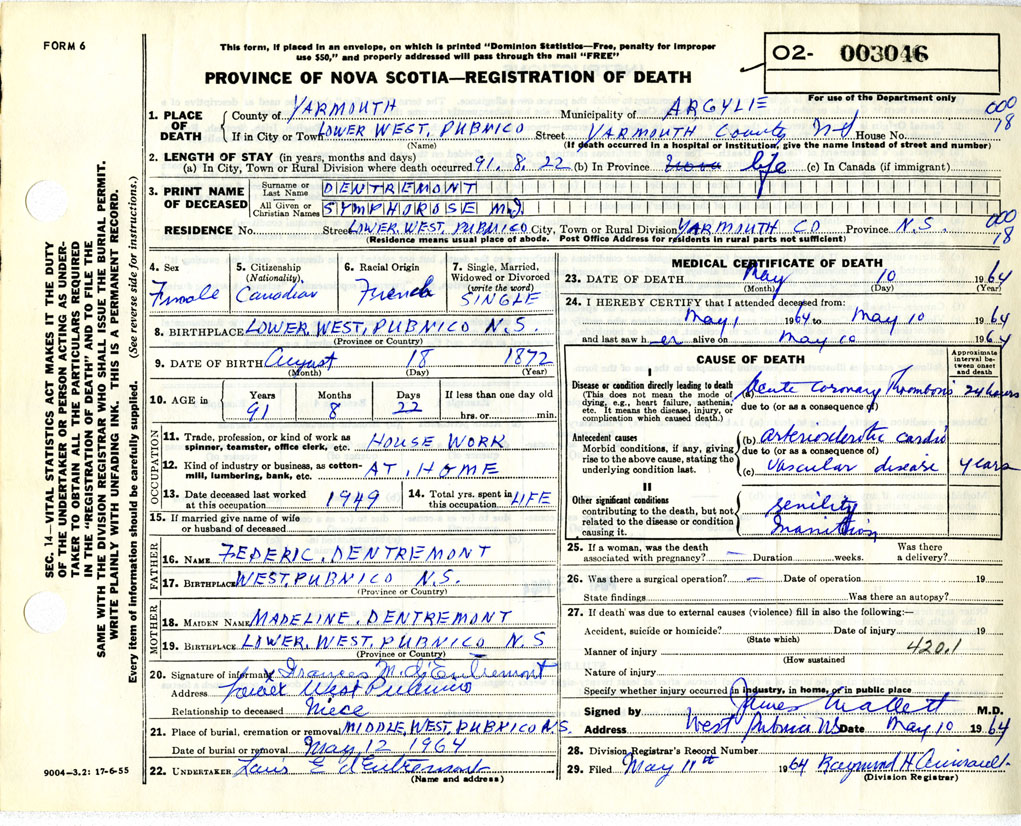 FORM 6
This form, if placed in an envelope, on which is printed "Dominion Statistics—Free, penalty for improper
use $50," and properly addressed will pass through the mail "FREE"
PROVINCE OF NOVA SCOTIA—REGISTRATION OF DEATH
O2- 003046
For use of the Department only
1. PLACE OF DEATH
County of YARMOUTH Municipality of ARGYLE 000
If in City or Town LOWER WEST, PUBNICO Street YARMOUTH County N.S House No. 78
(Name) (If death occurred in a hospital or institution, give the name instead of street and number)
2. LENGTH OF STAY (in years, months and days)
(a) In City, Town or Rural Division where death occurred 91. 8. 22 (b) In Province life (c) In Canada (if immigrant)
3. PRINT NAME OF DECEASED
Surname or Last Name DENTREMONT
All Given or Christian Names SYMPHOROSE M.J.
RESIDENCE No. Street LOWER, WEST, PUBNICO City, Town or Rural Division YARMOUTH CO Province N.S. 000 78
(Residence means usual place of abode. Post Office Address for residents in rural parts not sufficient)
4. Sex Female
5. Citizenship (Nationality) Canadian
6. Racial Origin French
7. Single, Married, Widowed or Divorced (write the word) SINGLE
8. BIRTHPLACE LOWER, WEST, PUBNICO N.S.
(Province or Country)
9. DATE OF BIRTH August 18 1872
(Month) (Day) (Year)
10. AGE in Years 91 Months 8 Days 22 If less than one day old
hrs. or min.
OCCUPATION
11. Trade, profession, or kind of work as spinner, teamster, office clerk, etc. HOUSE WORK
12. Kind of industry or business, as cotton-mill, lumbering, bank, etc. AT, HOME
13. Date deceased last worked at this occupation 1949
14. Total yrs. spent in this occupation LIFE
15. If married give name of wife or husband of deceased
FATHER
16. NAME FEDERIC, DENTREMONT
17. BIRTHPLACE WEST, PUBNICO N.S.
(Province or Country)
MOTHER
18. MAIDEN NAME MADELINE, DENTREMONT
19. BIRTHPLACE LOWER, WEST, PUBNICO N.S
(Province or Country)
20. Signature of informant X Frances M. d'Entremont
Address Lower West Pubnico
Relationship to deceased Niece
21. Place of burial, cremation or removal MIDDLE, WEST, PUBNICO N.S.
Date of burial or removal May 12 1964
22. UNDERTAKER Louis E d'Entremont
(Name and address)
9004—3.2: 17-6-55
MEDICAL CERTIFICATE OF DEATH
23. DATE OF DEATH May 10 1964
(Month) (Day) (Year)
24. I HEREBY CERTIFY that I attended deceased from:
May 1 1964 to May 10 1964
and last saw h er alive on May 10 1964
CAUSE OF DEATH
Approximate interval between onset and death
I
Disease or condition directly leading to death
(This does not mean the mode of dying, e.g., heart failure, asthenia, etc. It means the disease, injury, or complication which caused death.)
(a) Acute coronary Thrombosis 24 hours
due to (or as a consequence of)
Antecedent causes
Morbid conditions, if any, giving rise to the above cause, stating the underlying condition last.
(b) arteriosclerotic cardio
due to (or as a consequence of)
(c) vascular disease years
II
Other significant conditions
contributing to the death, but not related to the disease or condition causing it.
senility
Inanition
25. If a woman, was the death associated with pregnancy? — Duration weeks. Was there a delivery?
26. Was there a surgical operation? — Date of operation 19
State findings Was there an autopsy?
27. If death was due to external causes (violence) fill in also the following:—
Accident, suicide or homicide? Date of injury 19
(State which)
Manner of injury 420.1
(How sustained
Nature of injury
Specify whether injury occurred in industry, in home, or in public place
Signed by James Mallett M.D.
Address West Pubnico NS Date May 10 1964
28. Division Registrar's Record Number
29. Filed May 11th 1964 Raymond H Amirault
(Division Registrar)
SEC. 14—VITAL STATISTICS ACT MAKES IT THE DUTY
OF THE UNDERTAKER OR PERSON ACTING AS UNDER-
TAKER TO OBTAIN ALL THE PARTICULARS REQUIRED
IN THE "REGISTRATION OF DEATH" AND TO FILE THE
SAME WITH THE DIVISION REGISTRAR WHO SHALL ISSUE THE BURIAL PERMIT.
WRITE PLAINLY WITH UNFADING INK. THIS IS A PERMANENT RECORD.
Every item of information should be carefully supplied. (See reverse side for instructions.)